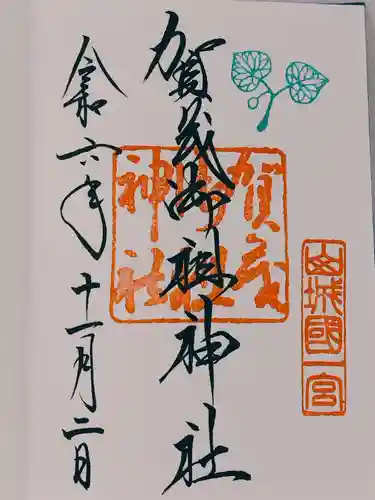 山城國一宮
賀茂御祖神社
賀茂御祖神社
令和六年十一月二日